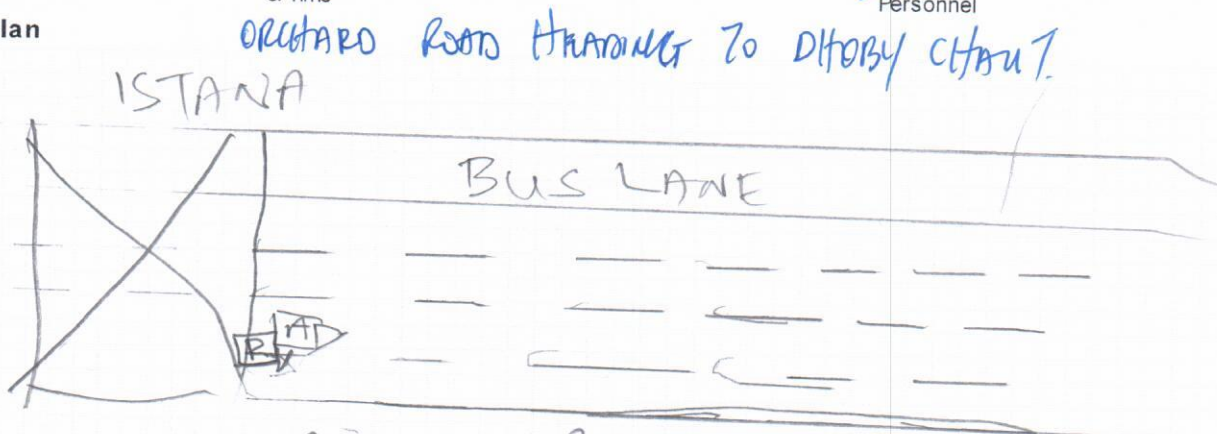 Personnel
lan
ORCHARD ROAD HEADING TO DHOBY GHAUT.
ISTANA
BUS LANE
AD
R